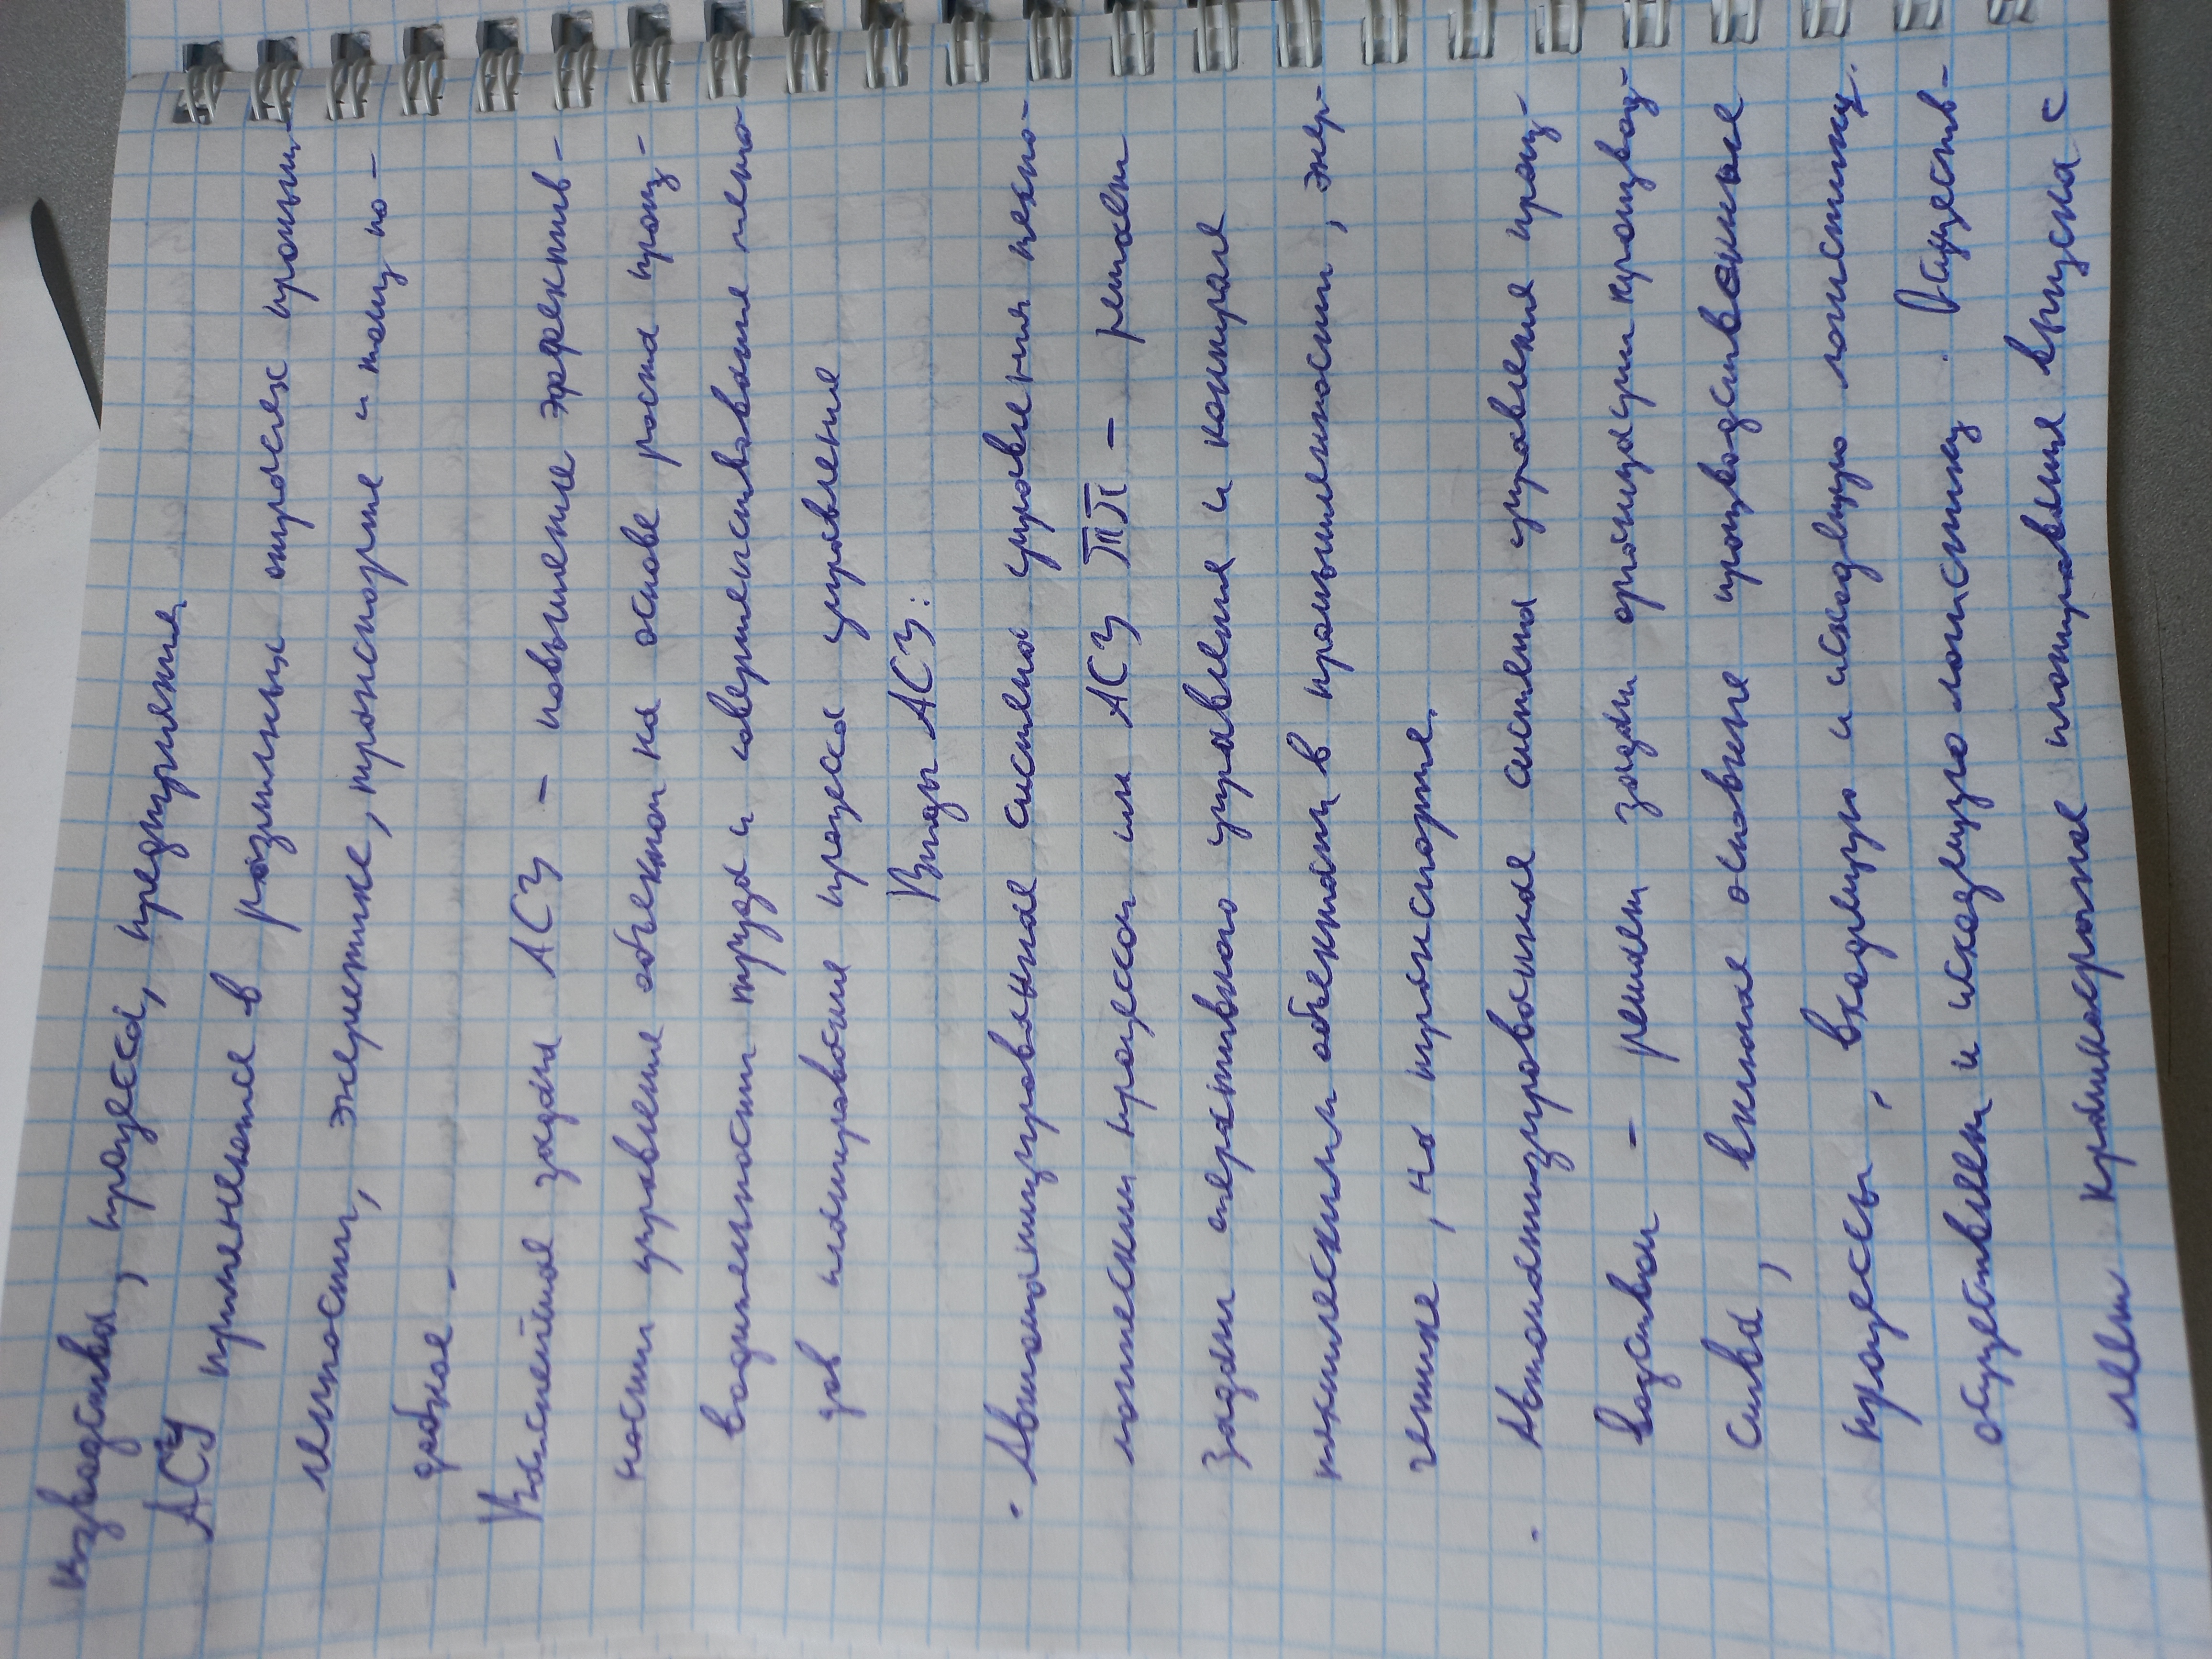 изводства, процесса, предприятия.
АСУ применяется в различных отраслях промыш-
ленности, энергетике, транспорте и тому по-
добное.
Важнейшая задача АСУ – повышение эффектив-
ности управление объектом на основе роста произ-
водительности труда и совершенствования мето-
дов планирование процесса управление
Виды АСУ:
· Автоматизированная система управления техно-
логическим процессом или АСУ ТП – решает
задачи оперативного управления и контроля
техническими объектами в промышленности, энер-
гетике, на транспорте.
· Автоматизированная система управления произ-
водством – решает задачи организации производ-
ства, включая основные производственные
процессы, входящую и исходящую логистику.
осуществляет и исходящую логистику. Осуществ-
ляет краткосрочное планирования выпуска с